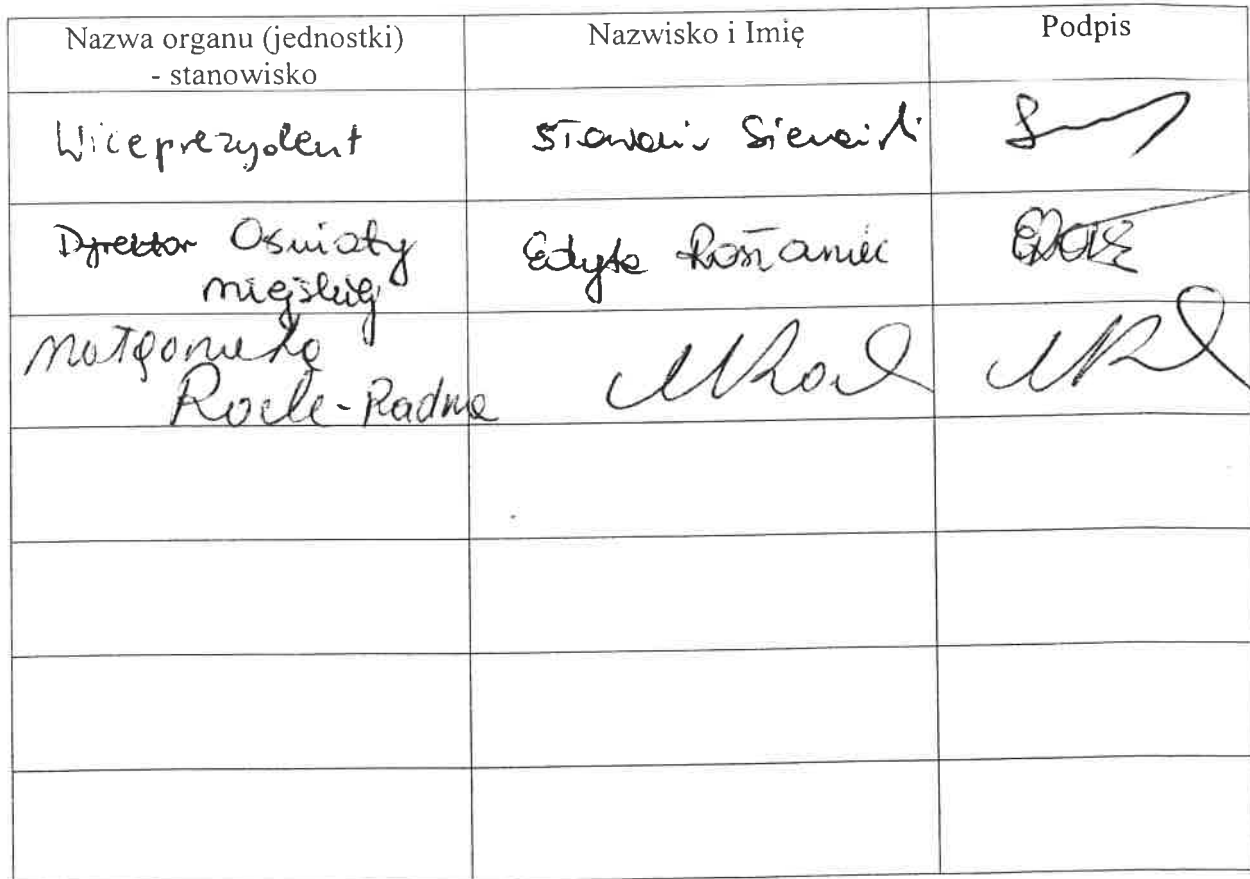 Nazwa organu (jednostki)
- stanowisko
Nazwisko i Imię
Podpis
Wiceprezydent
Dyrektor Oświaty
miejskiej
Edyta Rożaniec
Małgorzata
Rock-Radna